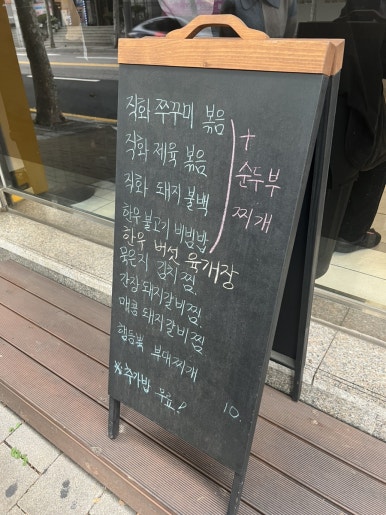 직화 쭈꾸미 볶음
직화 제육 볶음
직화 돼지 불백
한우 불고기 비빔밥
+
순두부
찌개
한우 버섯 육개장
묵은지 김치찜
간장 돼지갈비찜
매콤 돼지갈비찜
햄듬뿍 부대찌개
※추가밥 무료!
10.